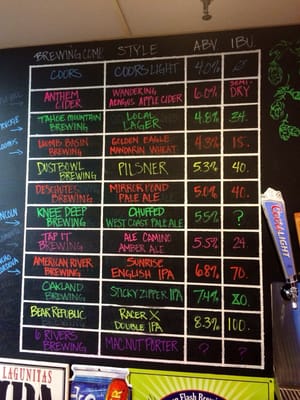 BREWING COMP. STYLE ABV IBU.
COORS COORS LIGHT 4.0%
ANTHEM CIDER WANDERING AENGUS APPLE CIDER 6.0% SEMI-DRY
TAHOE MOUNTAIN BREWING LOCAL LAGER 4.8% 24.
LUMB BASIN BREWING GOLDEN EAGLE MANDARIN WHEAT 4.3% 15.
DUSTBOWL BREWING PILSNER 5.3% 40.
DESCHUTES BREWING MIRROR POND PALE ALE 5.0% 40.
KNEE DEEP BREWING CHUFFED WEST COAST PALE ALE 5.5% ?
TAP IT BREWING ALE CAMINO AMBER ALE 5.5% 24
AMERICAN RIVER BREWING SUNRISE ENGLISH IPA 6.8% 70.
OAKLAND BREWING STICKY ZIPPER IPA 7.4% 80.
BEAR REPUBLIC RACER X DOUBLE IPA 8.3% 100.
6 RIVERS BREWING MACNUT PORTER ? ?
LINCOLN
COORS LIGHT
LAGUNITAS
IPA